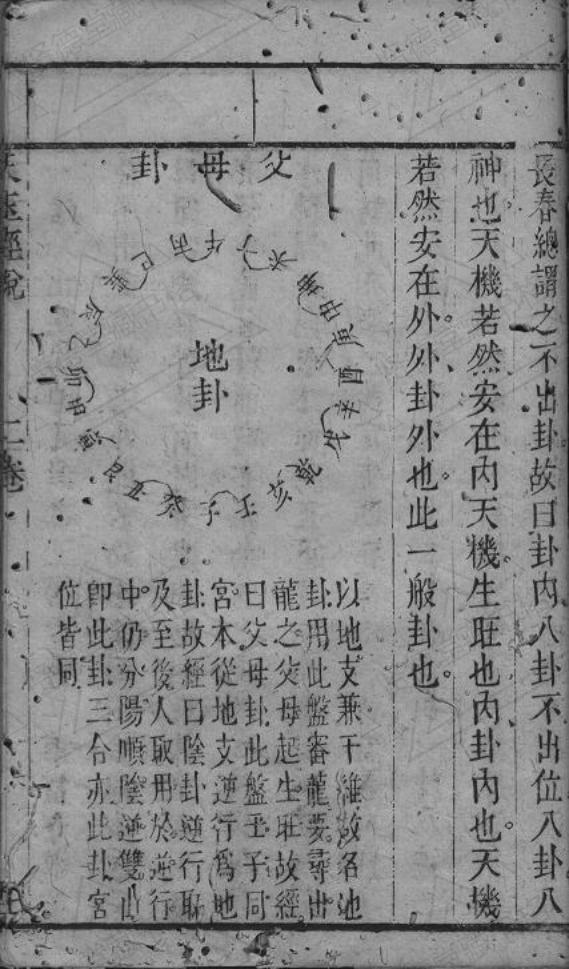 長春總謂之不出卦故曰卦內八卦不出位八卦八
神也天機若然安在內天機生旺也內卦內也天機
若然安在外外卦外也此一般卦也
父母卦
地卦
壬子癸丑艮寅甲卯乙辰巽巳丙午丁未坤申庚酉辛戌乾亥
以地支兼干維故名地
卦用此盤審龍要尋出
龍之父母起生旺故經
曰父母卦此盤壬子同
宮本從地支逆行爲地
卦故經曰陰卦逆行取
及至後人取用於逆行
中仍分陽順陰逆雙山
卽此卦三合亦此卦宮
位皆同
天玉經說
二卷